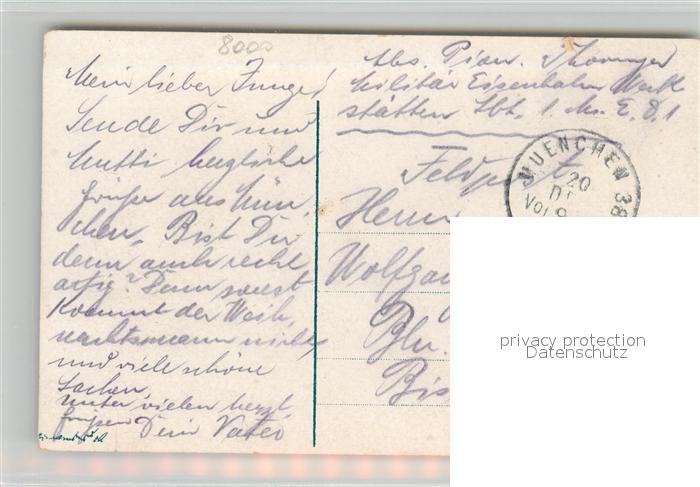 8000
Mein lieber Junge!
Sende Dir und
Mutti herzliche
Grüße aus Mün-
chen. Bist Du
denn auch recht
artig? Denn sonst
kommt der Weih-
nachtsmann nicht,
und viele schöne
Sachen.
Unter vielen herzl.
Grüßen Dein Vater
Abs. Pion.
Militär Eisenbahn Werk
stätten Abt. 1. M. E. D. 1
Feldpost
MUENCHEN 38
20
Herrn
Wolfgan
Bln.
Bis
privacy protection
Datenschutz